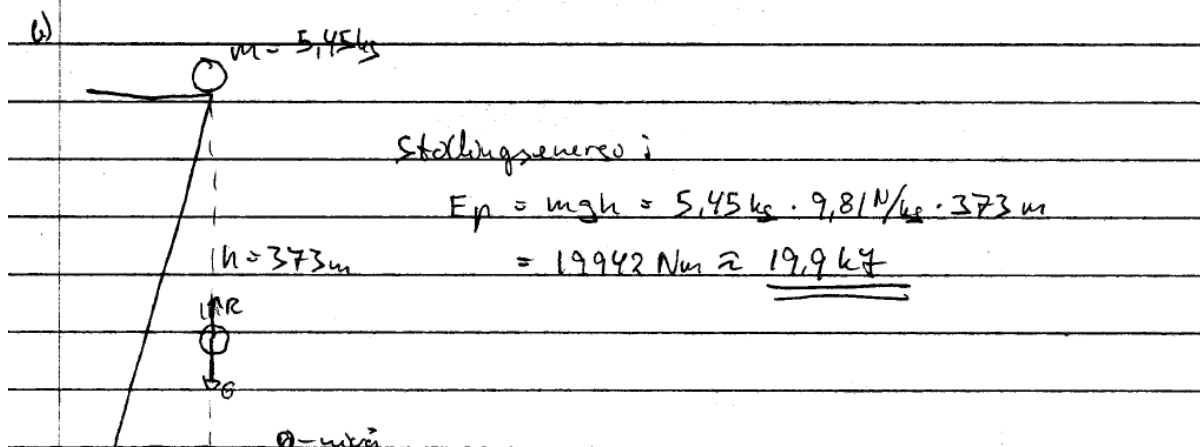 b)
m = 5,45 kg
Stillingsenergi:
Ep = mgh = 5,45 kg · 9,81 N/kg · 373 m
h = 373 m
= 19942 Nm ≈ 19,9 kJ
R
G
0-nivå